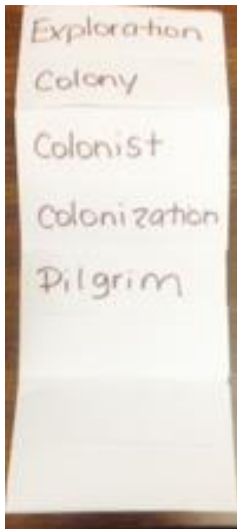 Exploration
Colony
Colonist
Colonization
Pilgrim